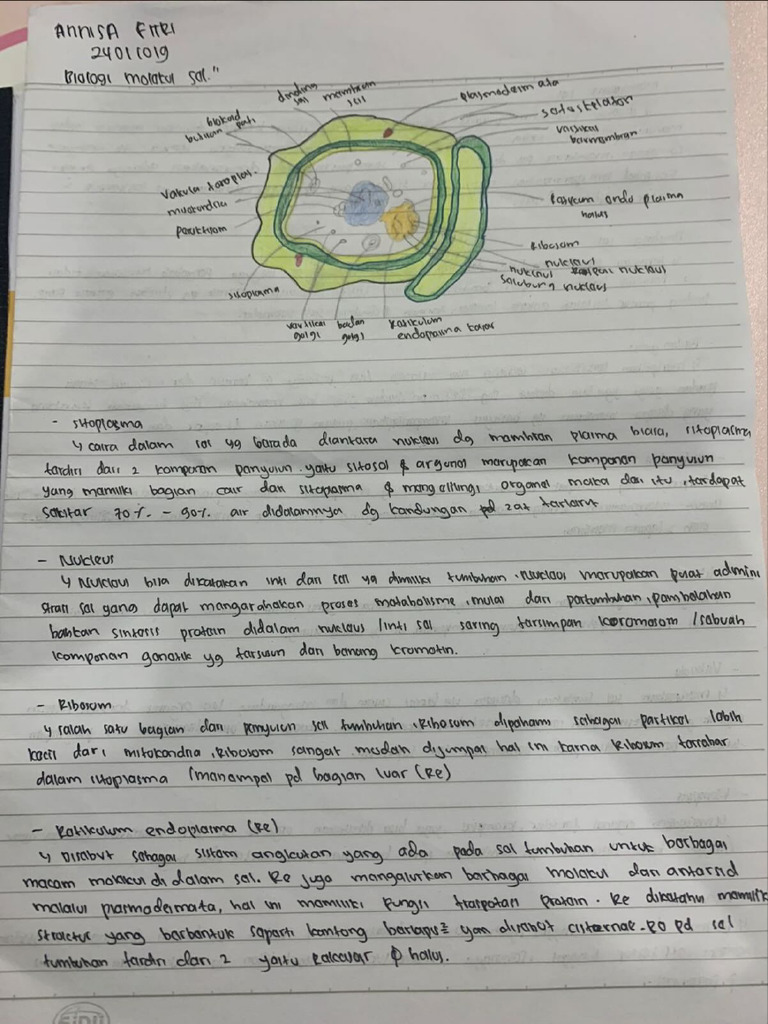 Annisa Fitri
24011019
Biologi molakul sal."
dinding sal
mambran sal
plasmodasmata
sitoskalaton
vasikal barmambran
butiran pati
Vakuola tonoplas.
mitokondria
paroksisom
Ratikulum endo plasma halus
Ribosom
nuklaus
nuklaus
Salubung nuklaus
sitoplasma
vasikal golgi
badan golgi
Ratikulum endoplasma kasar
- sitoplasma
↳ caira dalam sal yg barada diantara nuklaus dg mambran plasma biasa, sitoplasma
tardiri dari 2 komponan panyusun yaitu sitosol & organal marupakan komponan panyusun
yang mamiliki bagian cair dan sitoplasma & mangelilingi organal maka dari itu, tardapat
sakitar 70% - 90% air didalamnya dg kandungan pd zat tarlarut
- Nuklaus
↳ Nuklaus bisa dikatakan inti dari sal yg dimiliki tumbuhan. Nuklaus marupakan pusat admini
strasi sal yang dapat mangarahakan prosas matabolisme, mulai dari partumbuhan, pambalahan
bahkan sintasis protain didalam nuklaus /inti sal saring tarsimpan koromosom /sabuah
komponan ganatik yg tarsusun dari banang kromatin.
- Ribosom
↳ salah satu bagian dari panyusun sal tumbuhan. Ribosom dipahami sabagai partikal labih
kacil dari mitokondria, Ribosom sangat mudah dijumpai hal ini karna Ribosom tarsabar
dalam sitoplasma /manampal pd bagian luar (Re)
- Ratikulum endoplasma (Re)
↳ Disabut sabagai sistam angkutan yang ada pada sal tumbuhan untuk barbagai
macam molakul di dalam sal. Re juga mangalirkan barbagai molakul dan antarsal
malalui plasmodasmata, hal ini mamiliki fungsi protain. Re dikatahui mamilik
struktur yang barbantuk saparti kantong barlapis² yan disabut cisternae. RE pd sal
tumbuhan tardiri dari 2 yaitu & halus.
SiDU